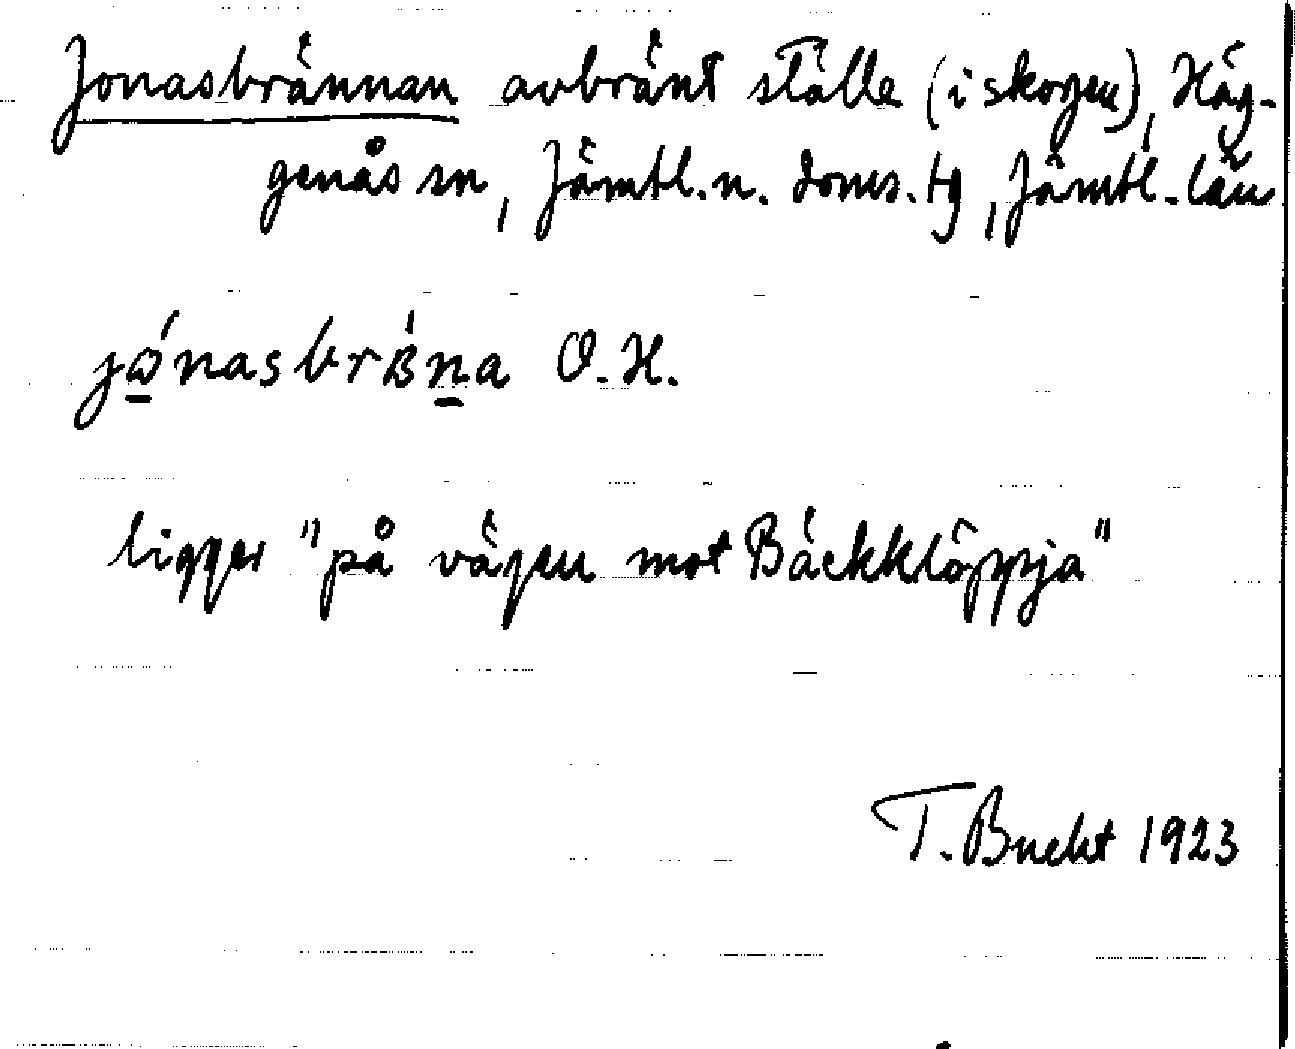 Jonasbrännan avbränt ställe (i skogen), Häg-
genås sn, Jämtl. n. doms. tg, Jämtl. län
O. H.
ligger "på vägen mot Bäckklöppja"
T. Bucht 1923